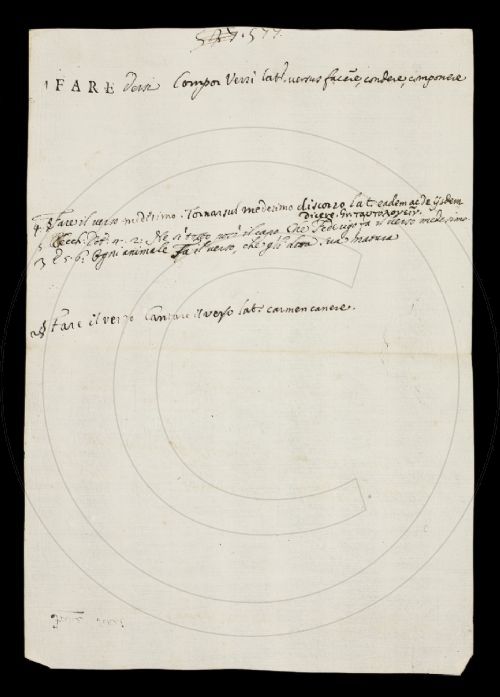 577.
1 FARE versi Compor Versi lat. versus facere, condere, componere
4 § Fare il verso medesimo. Tornar sul medesimo discorso lat. eadem ac de ijsdem
Dicere.
5 Cecch. n. 2. Ne si tosto il capo, Che il verso medesimo
3 E 5. 6. Ogni animale Fa il verso, che gli dona, ua natura
2 § Fare il verso Cantare il verso lat. carmen canere.